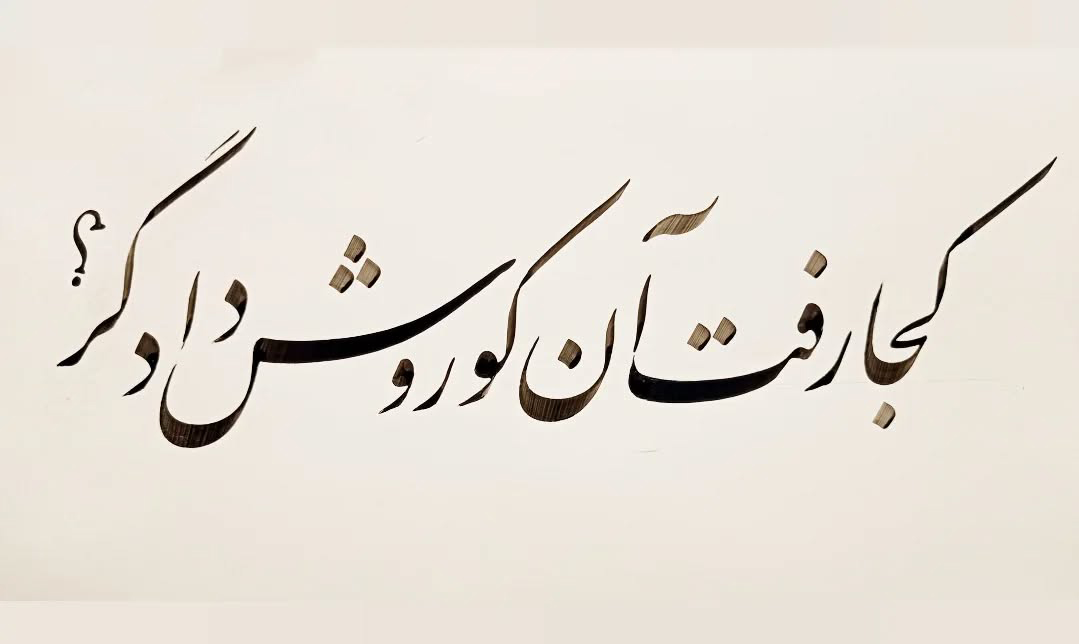 کجا رفت آن کوروش دادگر؟